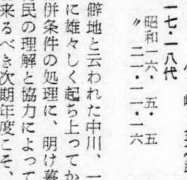 一七・一八代
昭和一六・五・五
〃 二一・一一・一六
僻地と云われた中川、一
に雄々しく起ち上ってか
併条件の処理に、明け暮
民の理解と協力によって
来るべき次期年度こそ、